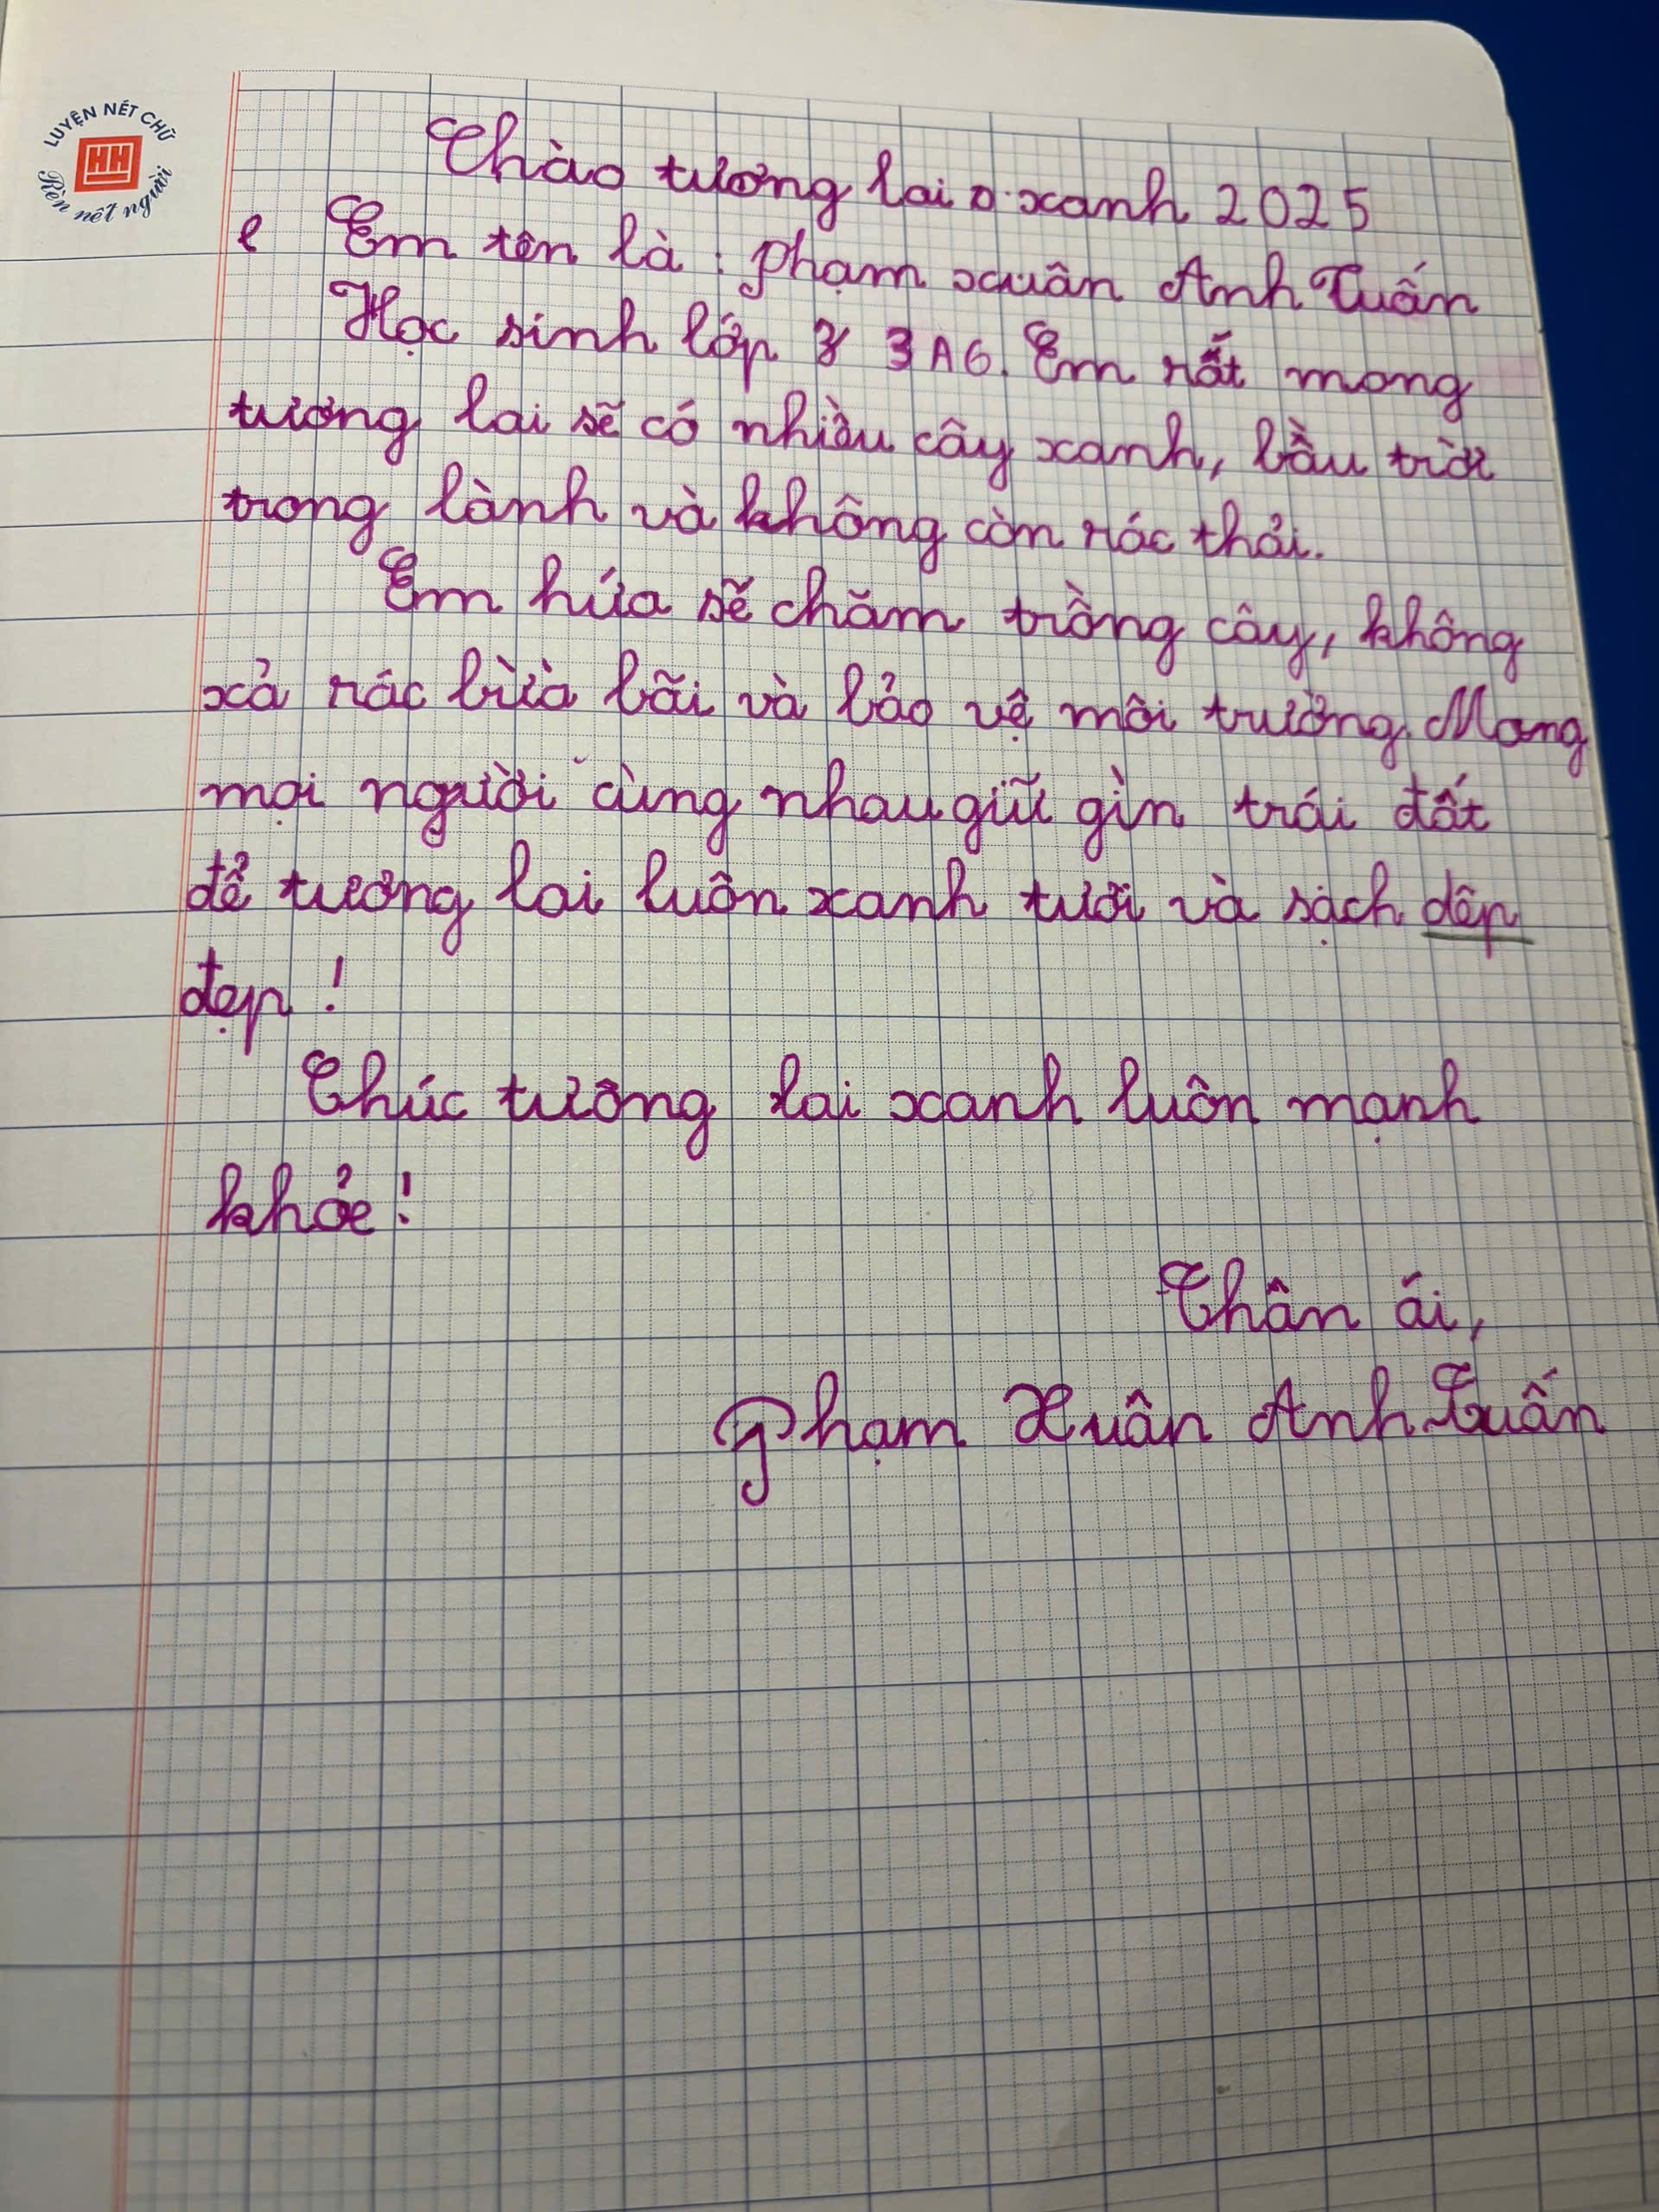 LUYỆN NÉT CHỮ
HH
Rèn nết người
Chào tương lai xanh 2025
e Em tên là : phạm xuân Anh Tuấn
Học sinh lớp 3 3A6. Em rất mong
tương lai sẽ có nhiều cây xanh, bầu trời
trong lành và không còn rác thải.
Em hứa sẽ chăm trồng cây, không
xả rác bừa bãi và bảo vệ môi trường. Mong
mọi người cùng nhau giữ gìn trái đất
để tương lai luôn xanh tươi và sạch dêp
đẹp !
Chúc tương lai xanh luôn mạnh
khỏe !
Thân ái,
Phạm Xuân Anh Tuấn